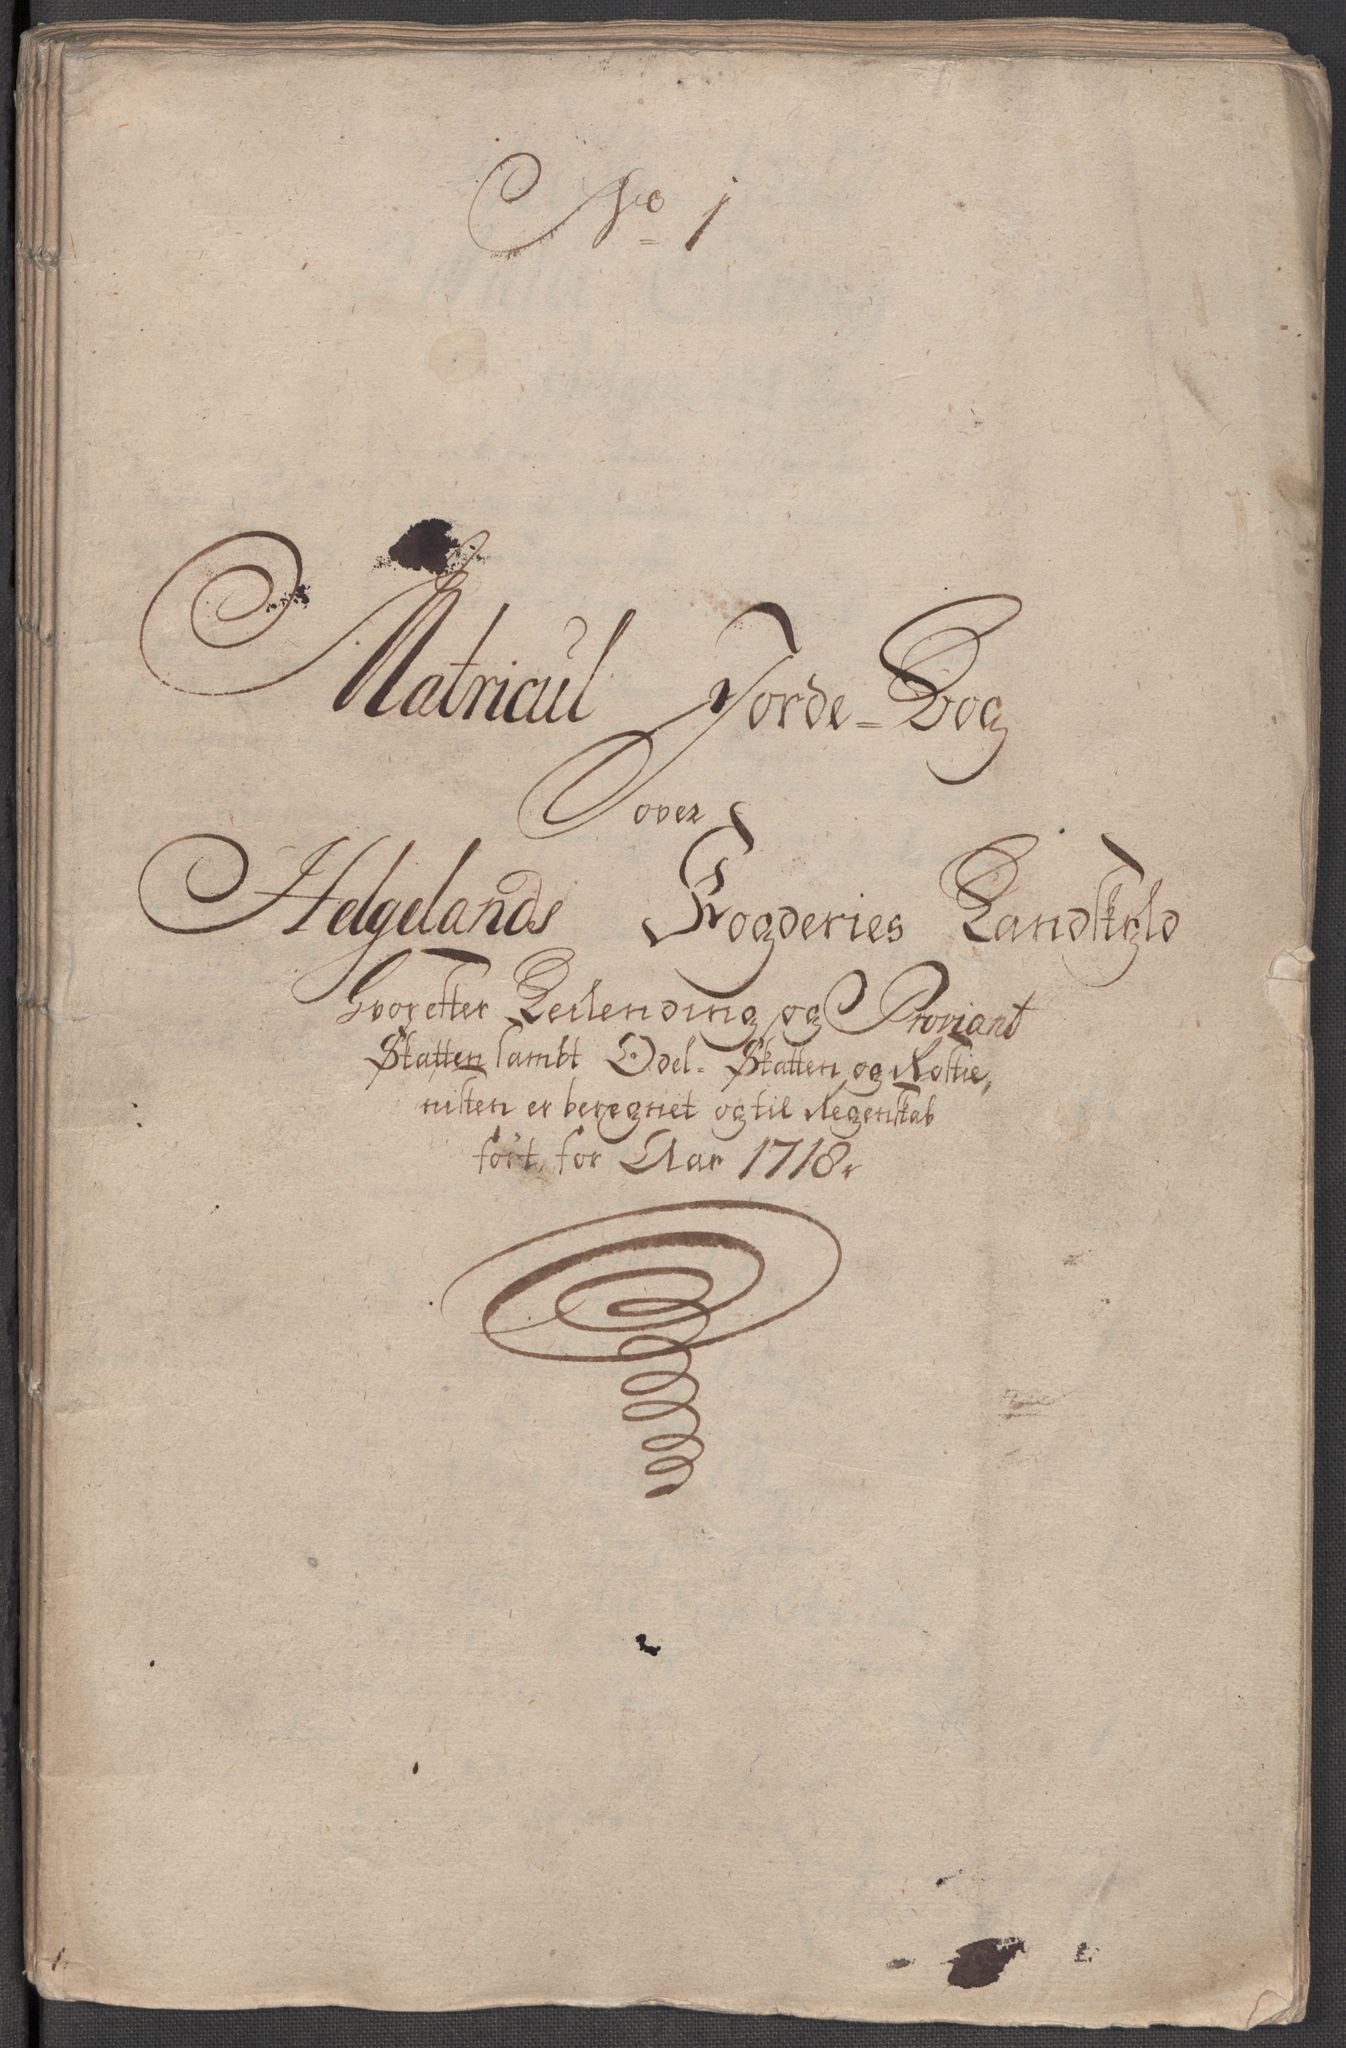 No 1
Matricul Jorde-Bog
over
Helgelands Fogderies Landskyld
Hvorefter Leilending og Proviant
Skatten sambt Odel-Skatten og Rostie,
nisten er beregnet og til Regenskab
ført for Aar 1718.